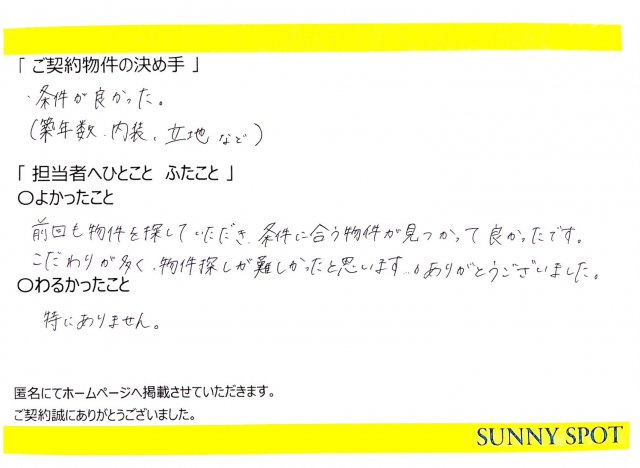 「 ご契約物件の決め手 」
・条件が良かった。
(築年数、内装、立地 など)
「 担当者へひとこと ふたこと 」
○よかったこと
前回も物件を探していただき、条件に合う物件が見つかって良かったです。
こだわりが多く、物件探しが難しかったと思います…。ありがとうございました。
○わるかったこと
特にありません。
匿名にてホームページへ掲載させていただきます。
ご契約誠にありがとうございました。
SUNNY SPOT